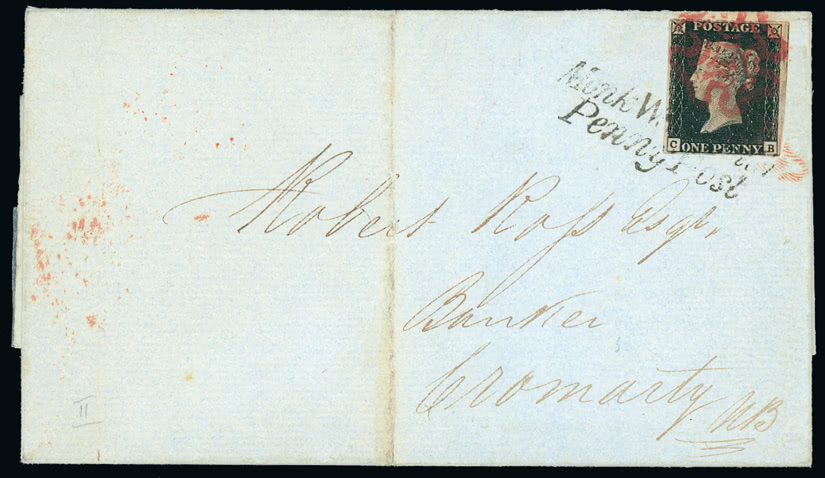 POSTAGE
C ONE PENNY B
Monk W
Penny Post
Robert Roſs Esqr.
Banker
Cromarty NB
II